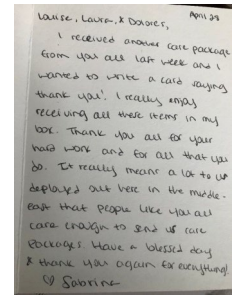 April 28
Louise, Laura, & Dolores,
I received another care package
from you all last week and I
wanted to write a card saying
thank you! I really enjoy
receiving all these items in my
box. Thank you all for your
hard work and for all that you
do. It really means a lot to us
deployed out here in the middle-
east that people like you all
care enough to send us care
packages. Have a blessed day
& thank you again for everything!
♡ Sabrina